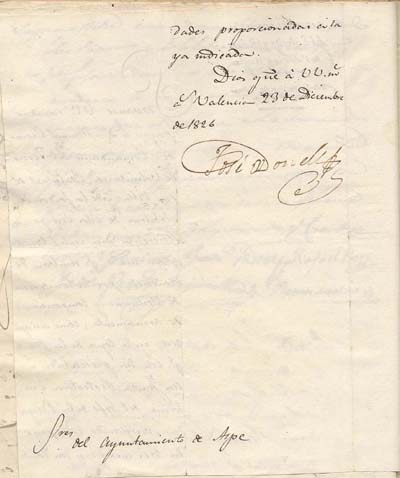 dades proporcionadas á la
ya indicada.
Dios gue á VV. ms
as Valencia 23 de Diciembre
de 1826
José O'Donell
Sres del Ayuntamiento de Aspe